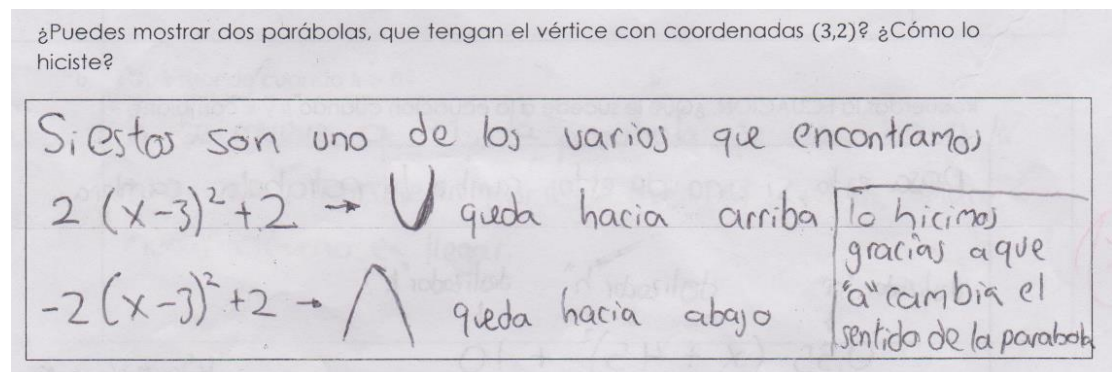 ¿Puedes mostrar dos parábolas, que tengan el vértice con coordenadas (3,2)? ¿Cómo lo
hiciste?
Si estos son uno de los varios que encontramos
2 (x-3)² + 2 → U queda hacia arriba
-2 (x-3)² + 2 → Λ queda hacia abajo
lo hicimos
gracias a que
"a" cambia el
sentido de la parabola